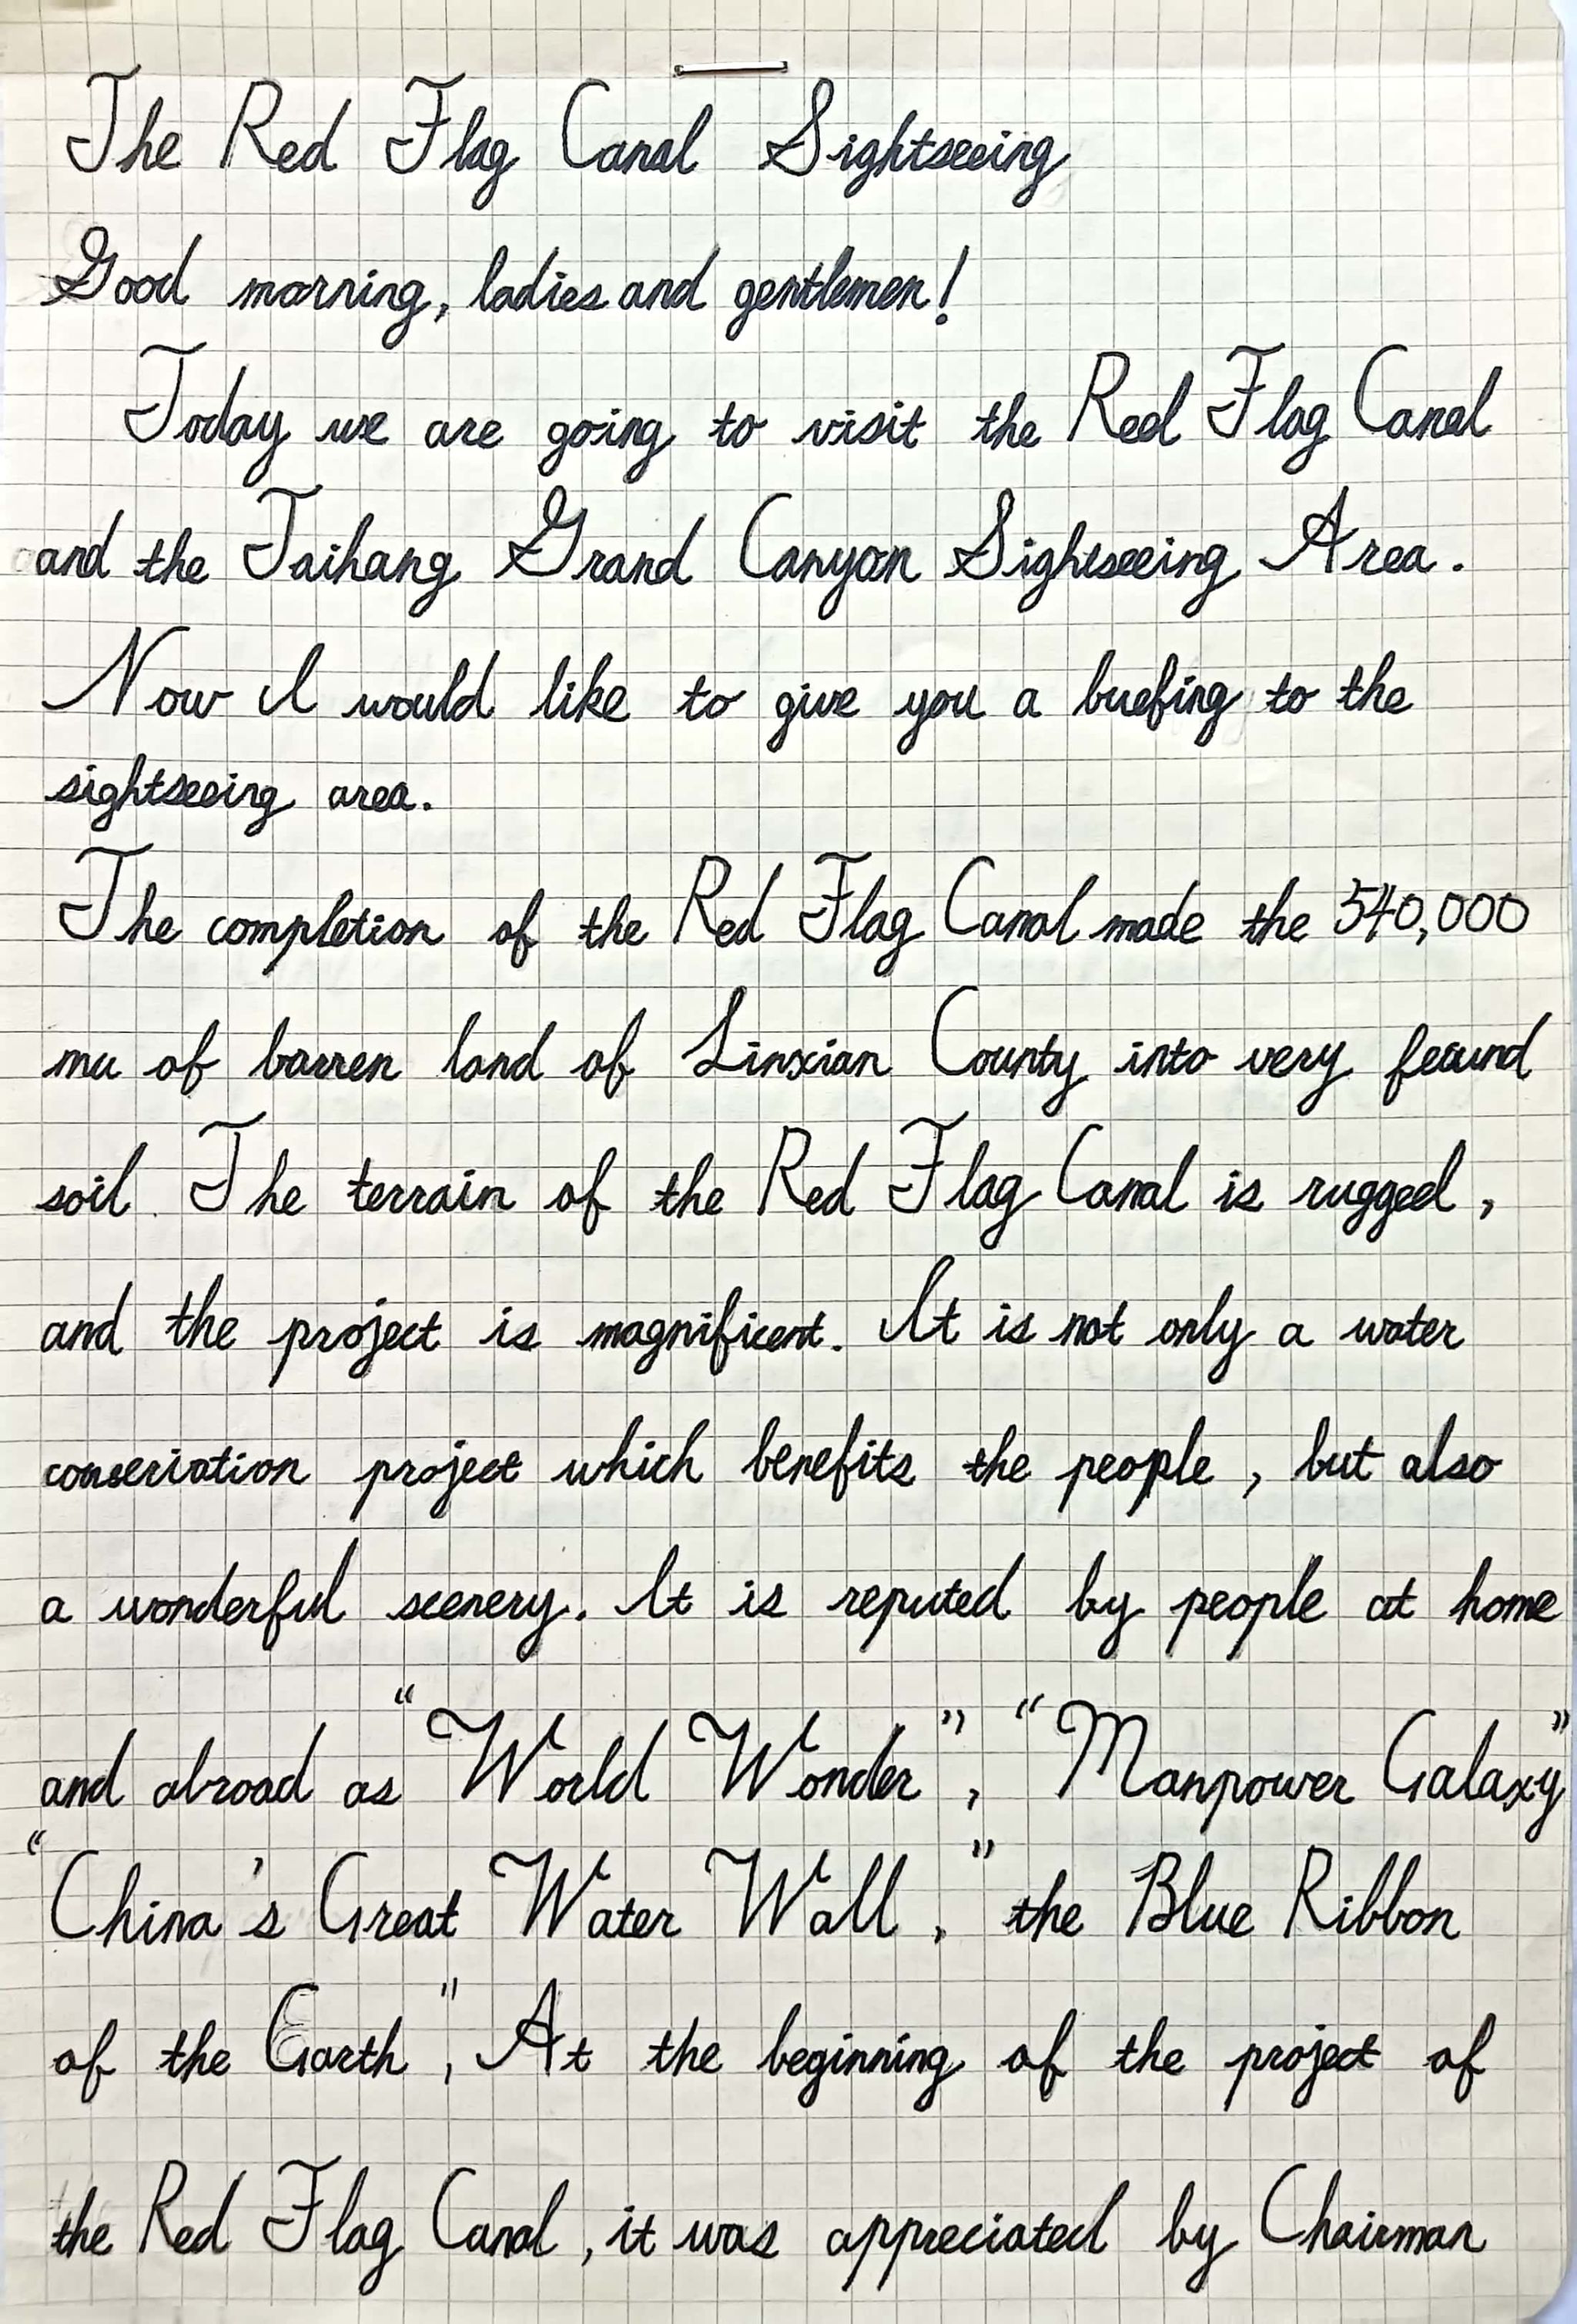 The Red Flag Canal Sightseeing
Good morning, ladies and gentlemen!
Today we are going to visit the Red Flag Canal
and the Taihang Grand Canyon Sightseeing Area.
Now I would like to give you a briefing to the
sightseeing area.
The completion of the Red Flag Canal made the 540,000
mu of barren land of Linxian County into very fecund
soil. The terrain of the Red Flag Canal is rugged,
and the project is magnificent. It is not only a water
conservation project which benefits the people, but also
a wonderful scenery. It is reputed by people at home
and abroad as “World Wonder”, “Manpower Galaxy”
“China's Great Water Wall,” the Blue Ribbon
of the Earth", At the beginning of the project of
the Red Flag Canal, it was appreciated by Chairman